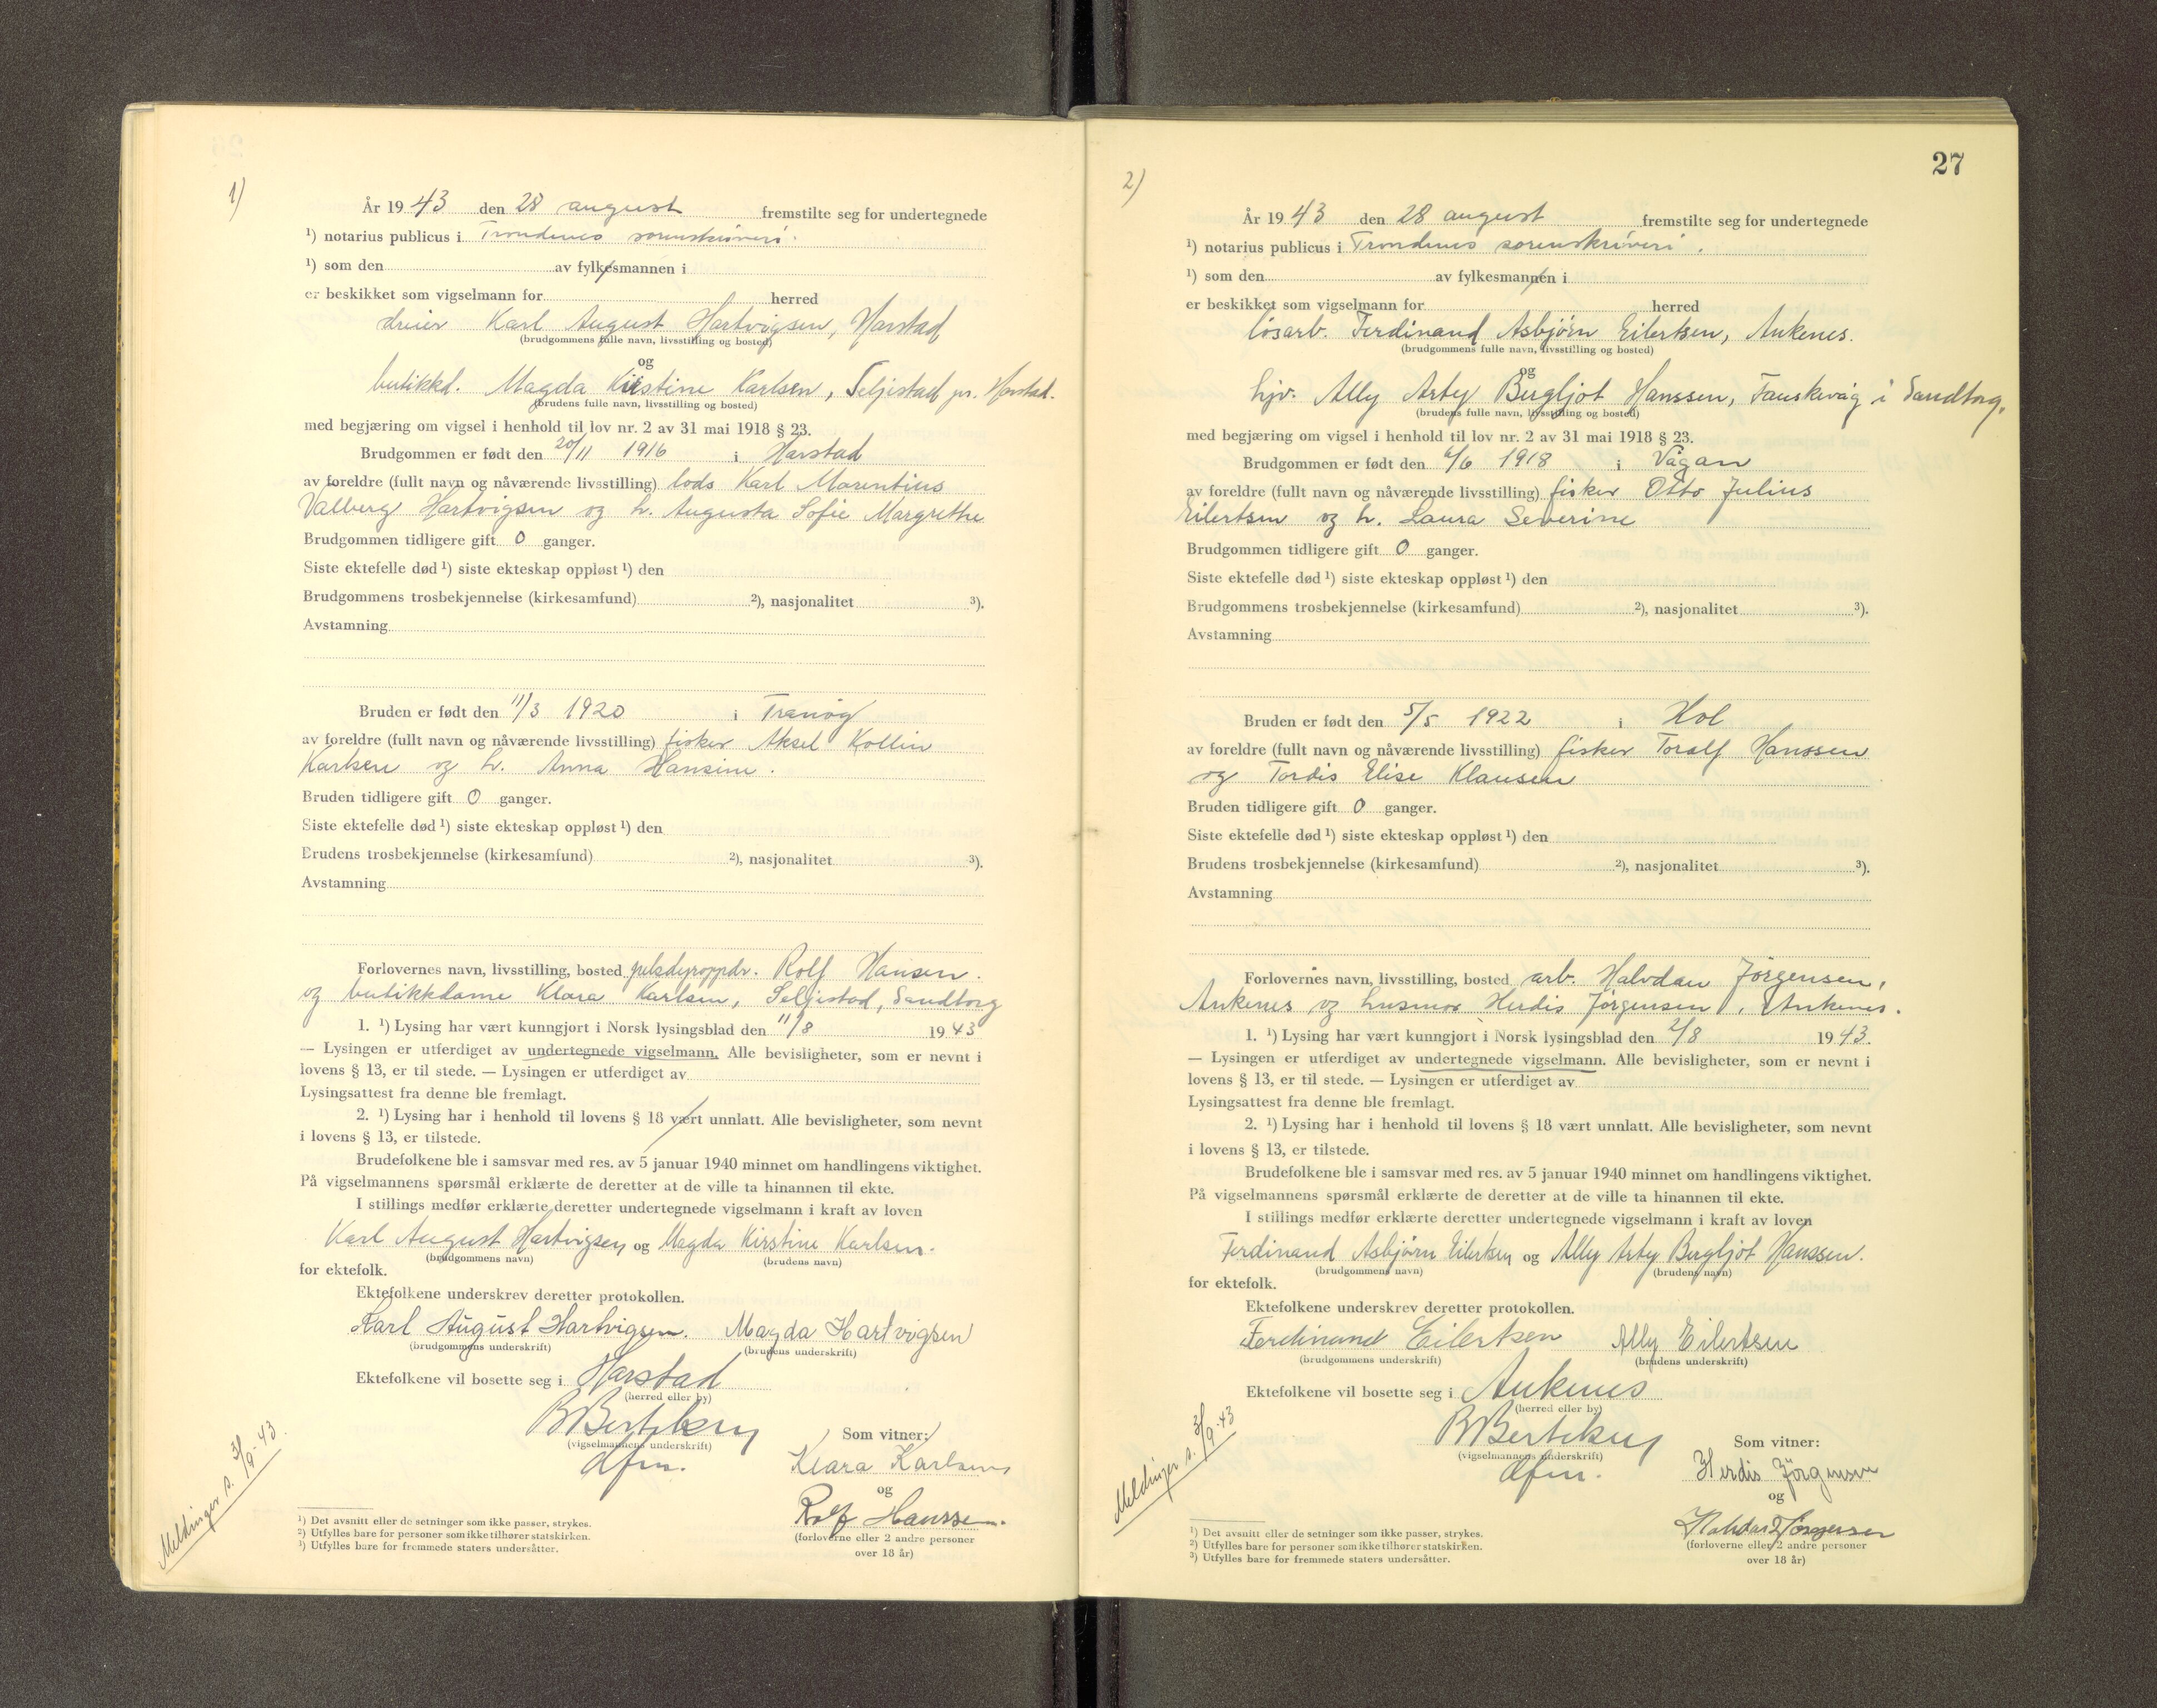 1)
År 1943 den 28 august fremstilte seg for undertegnede
¹) notarius publicus i Trondenes sorenskriveri.
¹) som den av fylkesmannen i
er beskikket som vigselmann for herred
dreier Karl August Hartvigsen, Harstad
(brudgommens fulle navn, livsstilling og bosted)
og
butikkd. Magda Kirstine Karlsen, Seljestad pr. Harstad.
(brudens fulle navn, livsstilling og bosted)
med begjæring om vigsel i henhold til lov nr. 2 av 31 mai 1918 § 23.
Brudgommen er født den 20/11 1916 i Harstad
av foreldre (fullt navn og nåværende livsstilling) lods Karl Marentius
Valberg Hartvigsen og h. Augusta Sofie Margrethe
Brudgommen tidligere gift 0 ganger.
Siste ektefelle død ¹) siste ekteskap oppløst ¹) den
Brudgommens trosbekjennelse (kirkesamfund) ²), nasjonalitet ³).
Avstamning
Bruden er født den 11/3 1920 i Tranøy
av foreldre (fullt navn og nåværende livsstilling) fisker Aksel Kollin
Karlsen og h. Anna Hansine.
Bruden tidligere gift 0 ganger.
Siste ektefelle død ¹) siste ekteskap oppløst ¹) den
Brudens trosbekjennelse (kirkesamfund) ²), nasjonalitet ³).
Avstamning
Forlovernes navn, livsstilling, bosted pelsdyroppdr. Rolf Hansen.
og butikkdame Klara Karlsen, Seljestad, Sandtorg
1. ¹) Lysing har vært kunngjort i Norsk lysingsblad den 11/8 1943
— Lysingen er utferdiget av undertegnede vigselmann. Alle bevisligheter, som er nevnt i
lovens § 13, er til stede. — Lysingen er utferdiget av
Lysingsattest fra denne ble fremlagt.
2. ¹) Lysing har i henhold til lovens § 18 vært unnlatt. Alle bevisligheter, som nevnt
i lovens § 13, er tilstede.
Brudefolkene ble i samsvar med res. av 5 januar 1940 minnet om handlingens viktighet.
På vigselmannens spørsmål erklærte de deretter at de ville ta hinannen til ekte.
I stillings medfør erklærte deretter undertegnede vigselmann i kraft av loven
Karl August Hartvigsen og Magda Kirstine Karlsen.
(brudgommens navn) (brudens navn)
for ektefolk.
Ektefolkene underskrev deretter protokollen.
Karl August Hartvigsen. Magda Hartvigsen
(brudgommens underskrift) (brudens underskrift)
Ektefolkene vil bosette seg i Harstad
(herred eller by)
(vigselmannens underskrift)
Som vitner:
Klara Karlsen
og
Rolf Hanssen.
(forloverne eller 2 andre personer
over 18 år)
Meldinger s. 3/9-43.
¹) Det avsnitt eller de setninger som ikke passer, strykes.
²) Utfylles bare for personer som ikke tilhører statskirken.
³) Utfylles bare for fremmede staters undersåtter.
27
2)
År 1943 den 28 august fremstilte seg for undertegnede
¹) notarius publicus i Trondenes sorenskriveri.
¹) som den av fylkesmannen i
er beskikket som vigselmann for herred
løsarb. Ferdinand Asbjørn Eilertsen, Ankenes.
(brudgommens fulle navn, livsstilling og bosted)
og
hjv. Ally Arty Bergljot Hanssen, Fauskevåg i Sandtorg.
(brudens fulle navn, livsstilling og bosted)
med begjæring om vigsel i henhold til lov nr. 2 av 31 mai 1918 § 23.
Brudgommen er født den 6/6 1918 i Vågan
av foreldre (fullt navn og nåværende livsstilling) fisker Otto Julius
Eilertsen og h. Laura Severine
Brudgommen tidligere gift 0 ganger.
Siste ektefelle død ¹) siste ekteskap oppløst ¹) den
Brudgommens trosbekjennelse (kirkesamfund) ²), nasjonalitet ³).
Avstamning
Bruden er født den 5/5 1922 i Hol
av foreldre (fullt navn og nåværende livsstilling) fisker Toralf Hanssen
og Tordis Elise Klausen
Bruden tidligere gift 0 ganger.
Siste ektefelle død ¹) siste ekteskap oppløst ¹) den
Brudens trosbekjennelse (kirkesamfund) ²), nasjonalitet ³).
Avstamning
Forlovernes navn, livsstilling, bosted arb. Halvdan Jörgensen,
Ankenes og husmor Herdis Jörgensen, Ankenes.
1. ¹) Lysing har vært kunngjort i Norsk lysingsblad den 2/8 1943.
— Lysingen er utferdiget av undertegnede vigselmann. Alle bevisligheter, som er nevnt i
lovens § 13, er til stede. — Lysingen er utferdiget av
Lysingsattest fra denne ble fremlagt.
2. ¹) Lysing har i henhold til lovens § 18 vært unnlatt. Alle bevisligheter, som nevnt
i lovens § 13, er tilstede.
Brudefolkene ble i samsvar med res. av 5 januar 1940 minnet om handlingens viktighet.
På vigselmannens spørsmål erklærte de deretter at de ville ta hinannen til ekte.
I stillings medfør erklærte deretter undertegnede vigselmann i kraft av loven
Ferdinand Asbjørn Eilertsen og Ally Arty Bergljot Hanssen.
(brudgommens navn) (brudens navn)
for ektefolk.
Ektefolkene underskrev deretter protokollen.
Ferdinand Eilertsen Ally Eilertsen
(brudgommens underskrift) (brudens underskrift)
Ektefolkene vil bosette seg i Ankenes
(herred eller by)
(vigselmannens underskrift)
Som vitner:
Herdis Jörgensen
og
Halvdan Jörgensen
(forloverne eller 2 andre personer
over 18 år)
Meldinger s. 3/9-43
¹) Det avsnitt eller de setninger som ikke passer, strykes.
²) Utfylles bare for personer som ikke tilhører statskirken.
³) Utfylles bare for fremmede staters undersåtter.